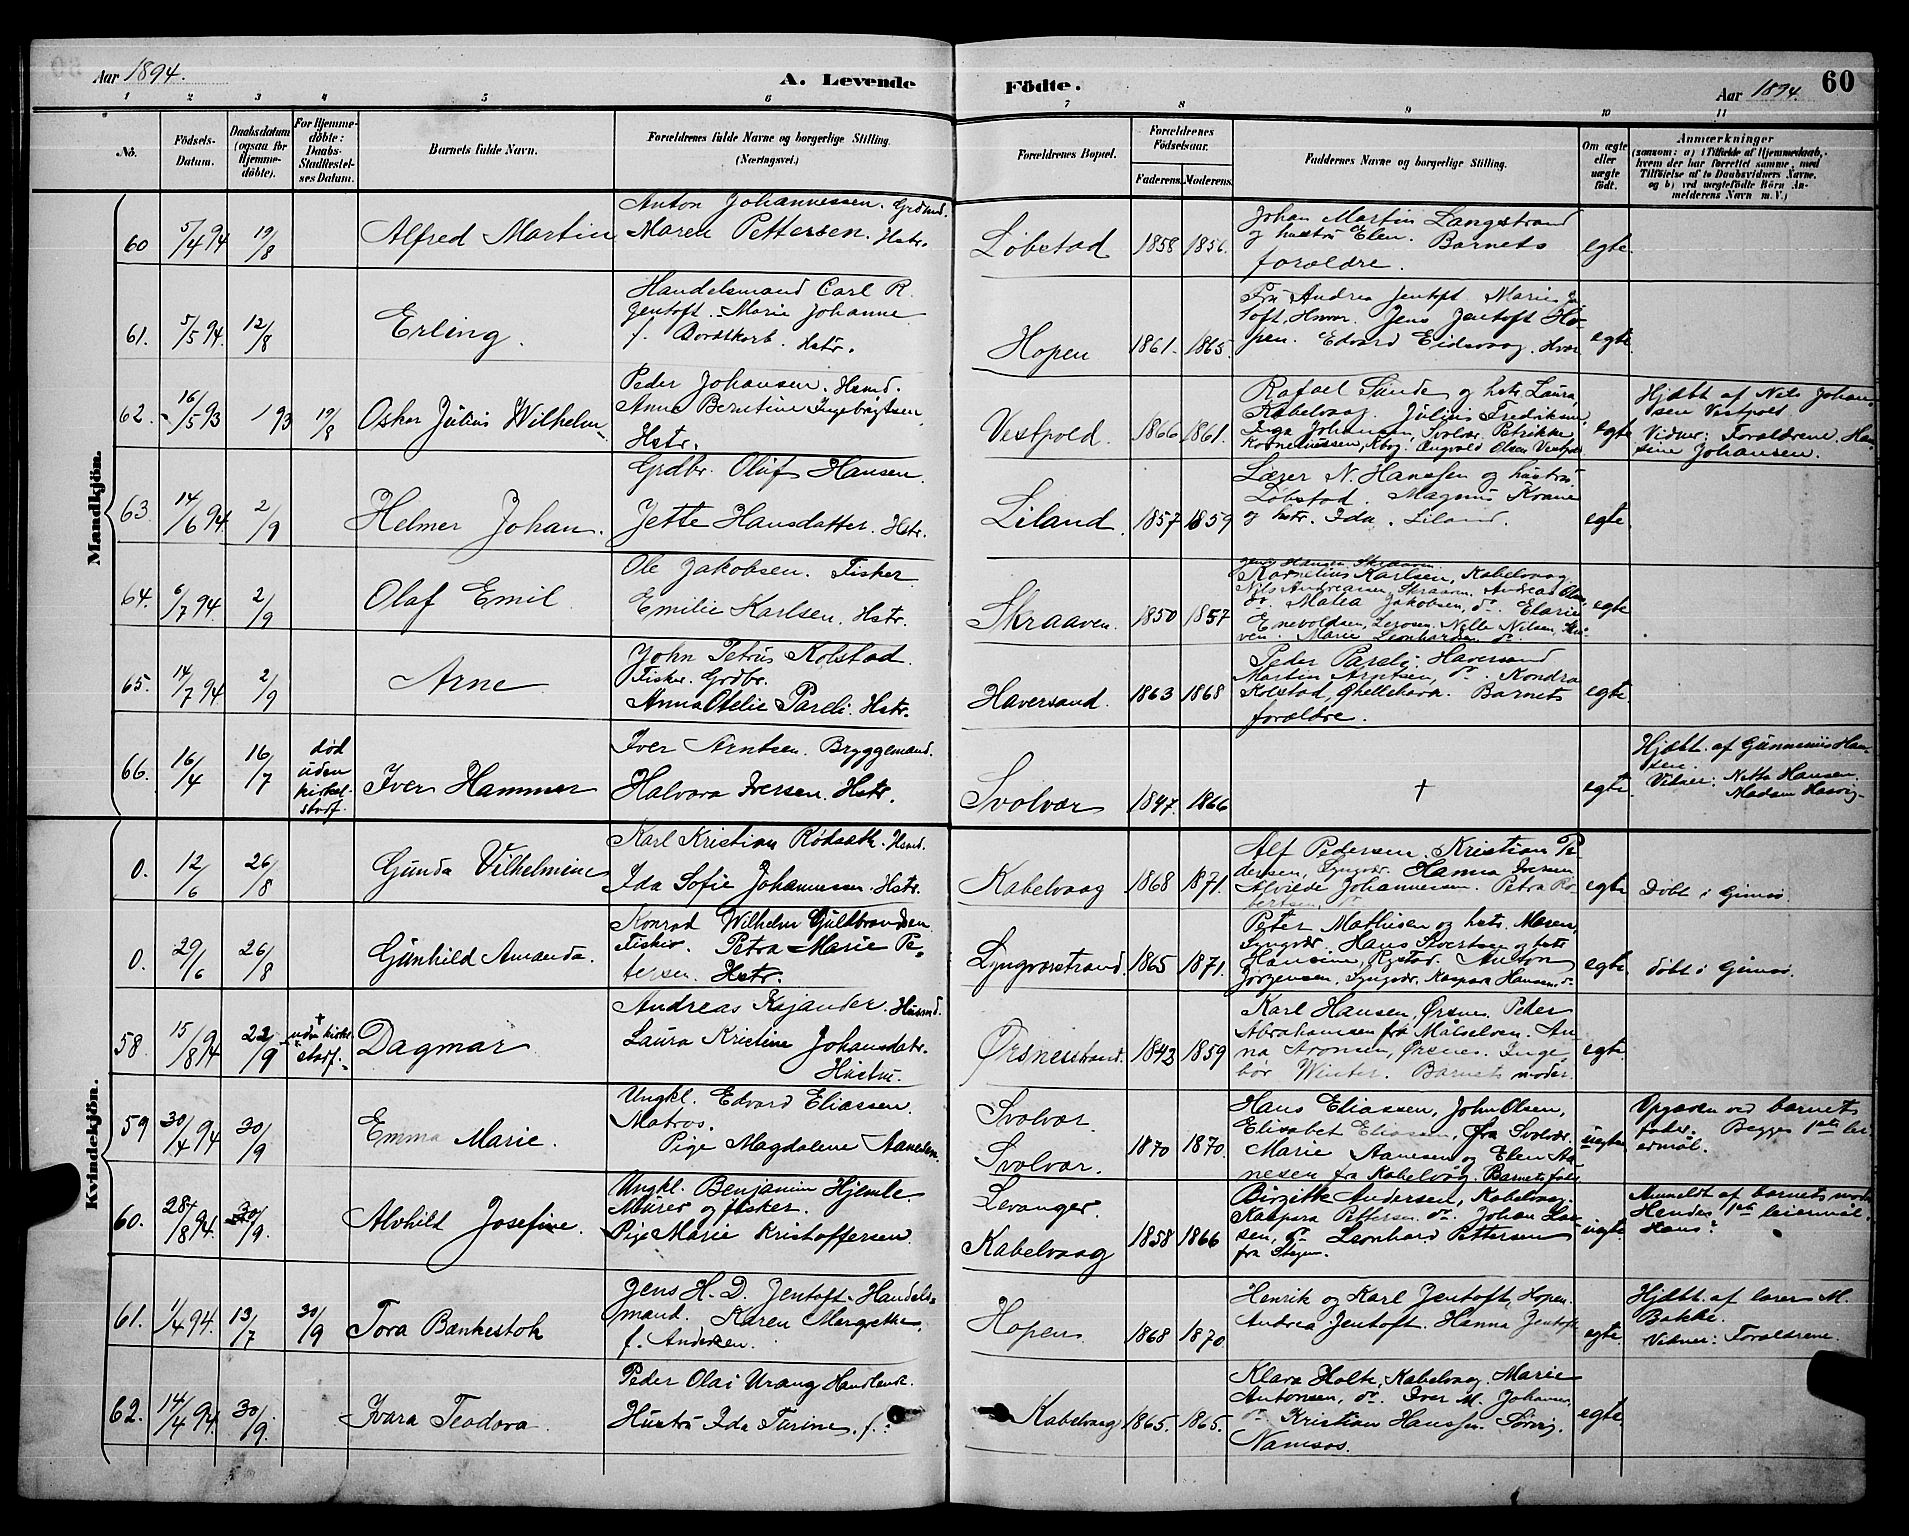 Aar 1894.
A. Levende
Fødte.
Aar 1894.
60
1 2 3 4 5 6 7 8 9 10 11
No.
Fødsels-Datum.
Daabsdatum (ogsaa for Hjemme-døbte).
For Hjemme-døbte: Daabs-Stadfæstel-ses Datum.
Barnets fulde Navn.
Forældrenes fulde Navne og borgerlige Stilling.
(Næringsvei.)
Forældrenes Bopæl.
Forældrenes Fødselsaar.
Faderens. Moderens.
Faddernes Navne og borgerlige Stilling.
Om ægte eller uægte født.
Anmærkninger
(saasom: a) i Tilfælde af Hjemmedaab, hvem der har forrettet samme, med Tilføielse af to Daabsvidners Navne, og b) ved uægtefødte Børn An-melderens Navn m. V.)
Mandkjøn.
60 5/4 94 19/8 Alfred Martin
Anton Johannessen. Grdmd.
Maren Pettersen. Hstr.
Løbstad 1858 1856.
Johan Martin Langstrand
og hustru Elen. Barnets
forældre.
egte
61. 5/5 94. 12/8 Erling.
Handelsmand Carl R.
Jentoft. Marie Johanne
f. Hstr.
Hopen 1861. 1865.
Fru Andrea Jentoft. Marie
Jens Jentoft Ho-
pen. Edvard Eidsvaag.
egte.
62. 16/5 93 1 93 19/8 Oskar Julius Wilhelm
Peder Johansen. Hsmd.
Anne Berntine
Hstr.
Vestpold. 1866 1861.
Rafael Sunde og hstr. Laura,
Kabelvaag. Julius Fredriksen
Inga Johansen, Svolvær. Petrikke
Kornelius­sen, Kvag. Angvald Olsen Vestpold
egte
Hjdbt af Nils Johan-
sen Vestpold.
Vidner: Forældrene. Han-
sine Johansen.
63. 14/6 94. 2/9 Helmer Johan.
Grdbr. Oluf Hansen.
Jette Hansdatter. Hstr.
Liland 1857 1859
Lærer N. Hanssen og hustru.
Løbstad. Magnus Krane
og hstr. Ida. Liland.
egte.
64. 6/7 94. 2/9 Olaf Emil
Ole Jakobsen. Fisker
Emilie Karlsen. Hstr.
Skraaven. 1850 1857
Jens Hansen Skraaven.
Kornelius Karlsen, Kabelvaag
Nils Andreasen, Skraaven. Andreas
do. Malea Jakobsen, do.
Enevoldsen, Nille Nilsen,
Marie Leonhardsen do
egte
65. 14/7 94 2/9 Arne
John Petrus Kolstad.
Fisker. Grdbr.
Anna Otelie Pareli. Hstr.
Haversand. 1863 1868
Peder Pareli, Haversand
Martin Arntsen, do.
Kolstad, Barnets
forældre.
egte
66. 16/4 16/7 død uden kirkel. stadf. Iver Hammer
Iver Arntsen. Bryggemand.
Halvara Iversen. Hstr.
Svolvær 1847. 1866
†
egte.
Hjdbt. af Gunnerius Han-
sen.
Vidner: Netta Hansen.
Madam
Kvindekjøn.
0. 12/6 26/8 Gunda Vilhelmine
Karl Kristian Hsmd.
Ida Sofie Johannessen. Hstr.
Kabelvaag 1868 1871.
Alf Pedersen. Kristian Pe-
dersen, Lyngvær. Hanna Iversen
Alvilde Johannesen. Petra Ro-
bertsen, do
egte
Døbt i Gimsø.
0. 29/6 26/8 Gunhild Amanda.
Konrad Wilhelm Guldbrandsen
Fisker. Petra Marie Pe-
tersen. Hstr.
Lyngværstrand 1865 1871.
Peter Mathisen og hstr. Maren,
Lyngvær. Hans Sivertsen og hstr
Hansine, Rystad. Anton
Jørgensen, Lyngvær. Kaspara Hansen do
egte.
døbt i Gimsø.
58. 15/8 94 22/9 † uden kirkel. stadf. Dagmar
Andreas Kajander. Husmd.
Laura Kristine Johansdatr.
Hustru.
Ørsnesstrand. 1843 1859
Karl Hansen, Ørsnes. Peder
Abrahamsen fra Målselven. An-
na Aronsen, Ørsnes. Inge-
bør Winter. Barnets moder.
egte
59 30/4 94 30/9 Emma Marie.
Ungkl. Edvard Eliassen.
Matros.
Pige Magdalene Aanesen.
Svolvær.
Svolvær. 1870 1870.
Hans Eliassen, John Olsen,
Elisabet Eliasen, fra Svolvær.
Marie Aanesen og Elen Aa-
nesen fra Kabelvåg. Barnets fader
uegte
Opgaven ved barnets
fader. Begges 1ste lei-
ermål.
60. 28/8 94. 30/9. Alvhilt Josefine.
Ungkl. Benjamin Hjemle.
Murer og fisker.
Pige Marie Kristoffersen.
Levanger.
Kabelvaag 1858 1866
Birgitte Andersen, Kabelvaag.
Kaspara Pettersen do. Johan Lar-
sen, do Leonhard Pettersen
fra Stegen.
uegte.
Anmeldt af barnets moder
Hendes 1ste leiermål.
Hans?
61. 1/4 94. 13/7 30/9 Tora Bankestok
Jens H. D. Jentoft. Handels-
mand. Karen Margrethe,
f. Andersen.
Hopen 1868 1870
Henrik og Karl Jentoft, Hopen.
Andrea Jentoft. Hanna Jentoft
egte
Hjdbt. af lærer M.
Bakke.
Vidner: Forældrene.
62. 14/4 94 30/9. Ivara Teodora
Peder Olai Urang Handlende.
Hustru Ida Turine. f.?
Kabelvaag 1865. 1865.
Klara Holte, Kabelvaag Marie
Antonsen, do. Iver M. Johansen
do Kristian Hanssen.
Namsos.
egte